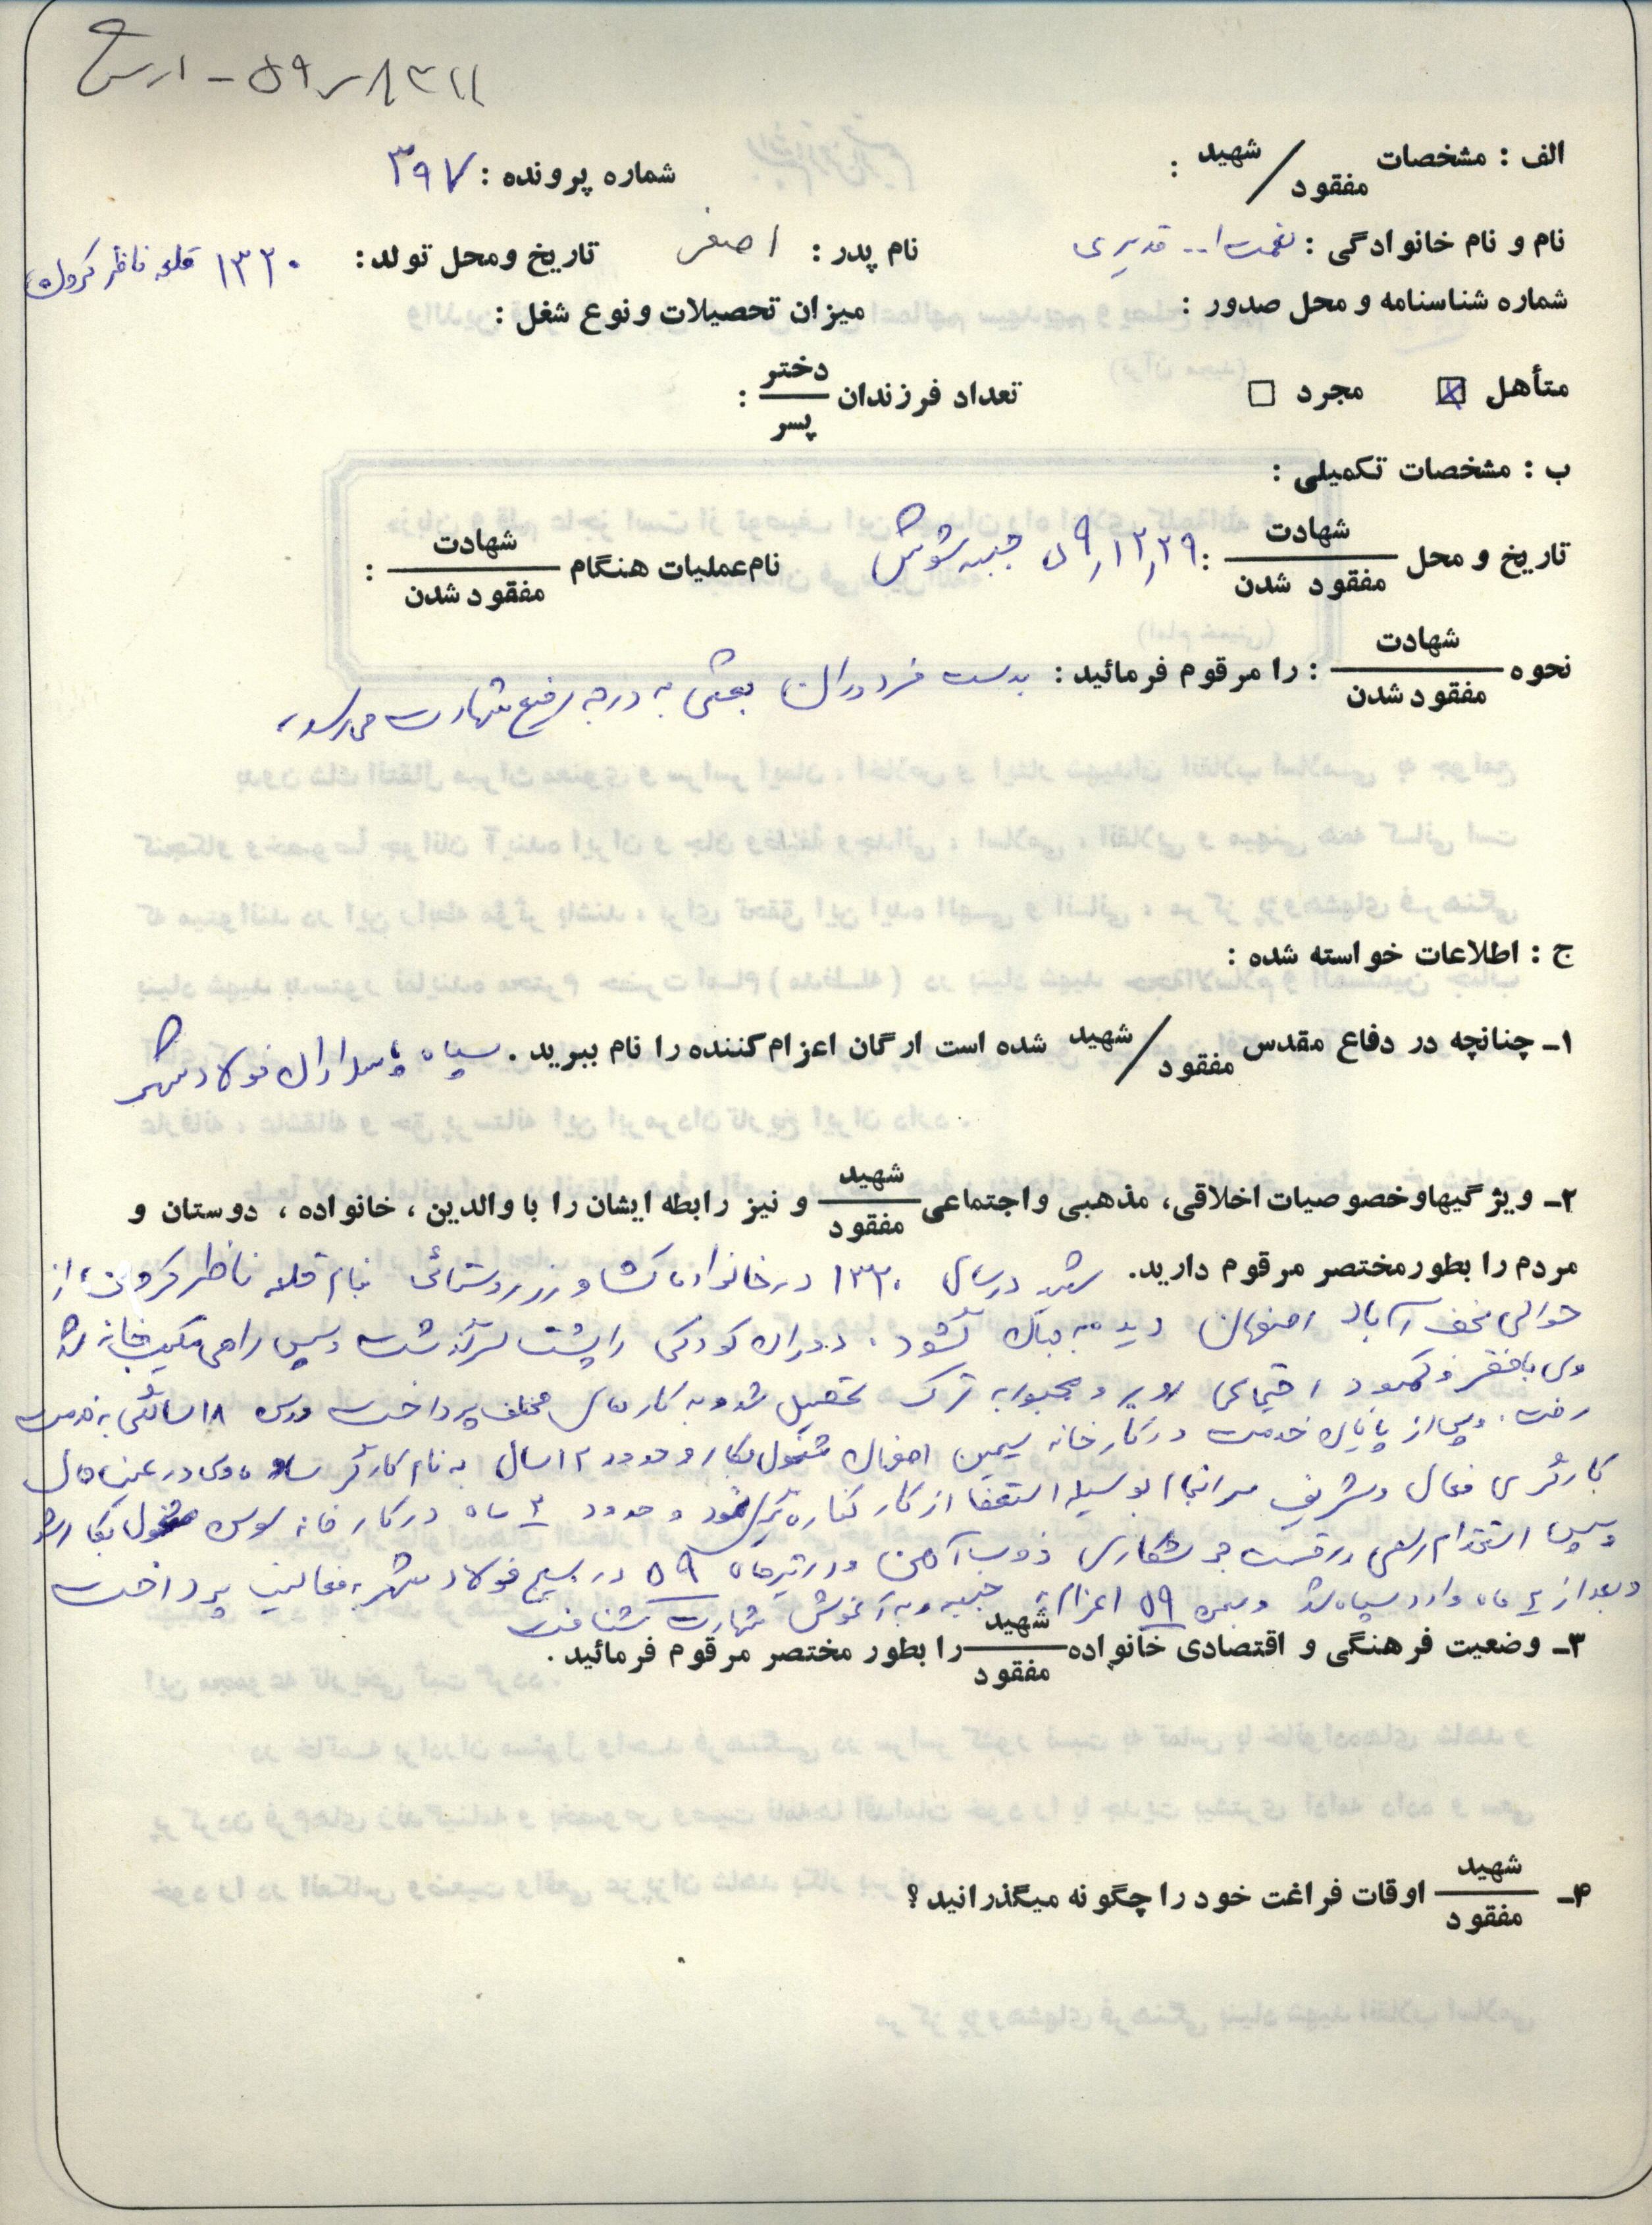 الف : مشخصات شهید / مفقود :
شماره پرونده : ۳۹۷
نام و نام خانوادگی : نعمت ا... قدیری نام پدر : اصغر تاریخ و محل تولد : ۱۳۲۰ قلعه ناظر کرون
شماره شناسنامه و محل صدور : میزان تحصیلات و نوع شغل :
متأهل ☒ مجرد ☐ تعداد فرزندان دختر / پسر :
ب : مشخصات تکمیلی :
تاریخ و محل شهادت / مفقود شدن : ۵۹،۱۲،۲۹ جبهه شوش نام عملیات هنگام شهادت / مفقود شدن :
نحوه شهادت / مفقود شدن : را مرقوم فرمائید : بدست مزدوران بعثی به درجه رفیع شهادت می‌رسد
ج : اطلاعات خواسته شده :
۱ـ چنانچه در دفاع مقدس شهید / مفقود شده است ارگان اعزام کننده را نام ببرید . سپاه پاسداران فولادشهر
۲ـ ویژگیها و خصوصیات اخلاقی، مذهبی و اجتماعی شهید / مفقود و نیز رابطه ایشان را با والدین ، خانواده ، دوستان و
مردم را بطور مختصر مرقوم دارید. شهید در سال ۱۳۲۰ در خانواده کشاورز روستائی بنام قلعه ناظر کرون از
حوالی نجف آباد اصفهان دیده به جهان گشود . دوران کودکی را پشت سر گذشت و سپس راهی مکتب خانه شد
وی با فقر و کمبود اجتماعی روبرو مجبور به ترک تحصیل شد و به کارهای مختلف پرداخت و در سن ۱۸ سالگی به خدمت
رفت . و پس از پایان خدمت در کارخانه سیمین اصفهان مشغول بکار و حدود ۱۲ سال به نام کارگر ساده وی در عین حال
کارگری فعال و شریف سرانجام بوسیله استعفا از کار کناره‌گیری نمود و حدود ۳ ماه در کارخانه مشغول بکار شد
سپس استخدام رسمی در قسمت ذوب آهن و در تیرماه ۵۹ در بسیج فولادشهر به فعالیت پرداخت
و بعد از ۴ ماه وارد سپاه شد و ۵۹ اعزام به جبهه و به آغوش شهادت شتافت
۳ـ وضعیت فرهنگی و اقتصادی خانواده شهید / مفقود را بطور مختصر مرقوم فرمائید .
۴ـ شهید / مفقود اوقات فراغت خود را چگونه میگذرانید ؟